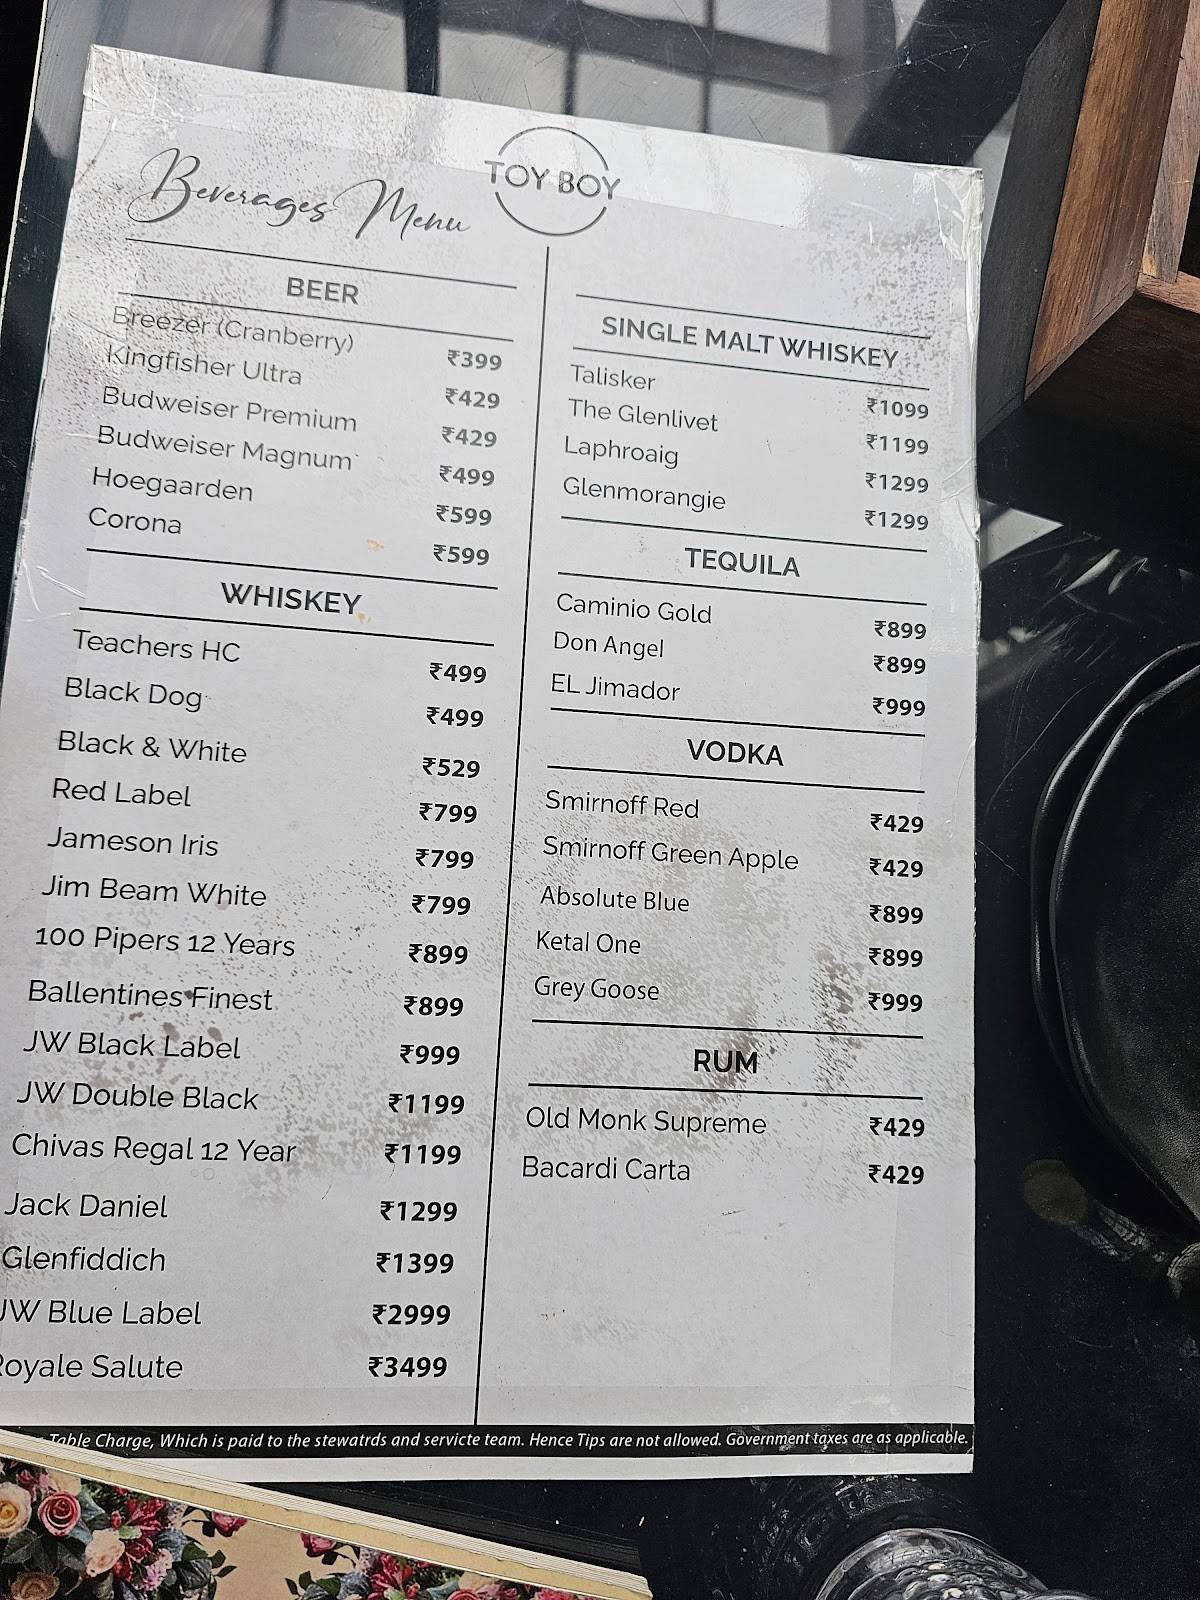 Beverages Menu
TOY BOY
BEER
Breezer (Cranberry) ₹399
Kingfisher Ultra ₹429
Budweiser Premium ₹429
Budweiser Magnum ₹499
Hoegaarden ₹599
Corona ₹599
WHISKEY
Teachers HC ₹499
Black Dog ₹499
Black & White ₹529
Red Label ₹799
Jameson Iris ₹799
Jim Beam White ₹799
100 Pipers 12 Years ₹899
Ballentines Finest ₹899
JW Black Label ₹999
JW Double Black ₹1199
Chivas Regal 12 Year ₹1199
Jack Daniel ₹1299
Glenfiddich ₹1399
JW Blue Label ₹2999
Royale Salute ₹3499
SINGLE MALT WHISKEY
Talisker ₹1099
The Glenlivet ₹1199
Laphroaig ₹1299
Glenmorangie ₹1299
TEQUILA
Caminio Gold ₹899
Don Angel ₹899
EL Jimador ₹999
VODKA
Smirnoff Red ₹429
Smirnoff Green Apple ₹429
Absolute Blue ₹899
Ketal One ₹899
Grey Goose ₹999
RUM
Old Monk Supreme ₹429
Bacardi Carta ₹429
Table Charge, Which is paid to the stewatrds and servicte team. Hence Tips are not allowed. Government taxes are as applicable.